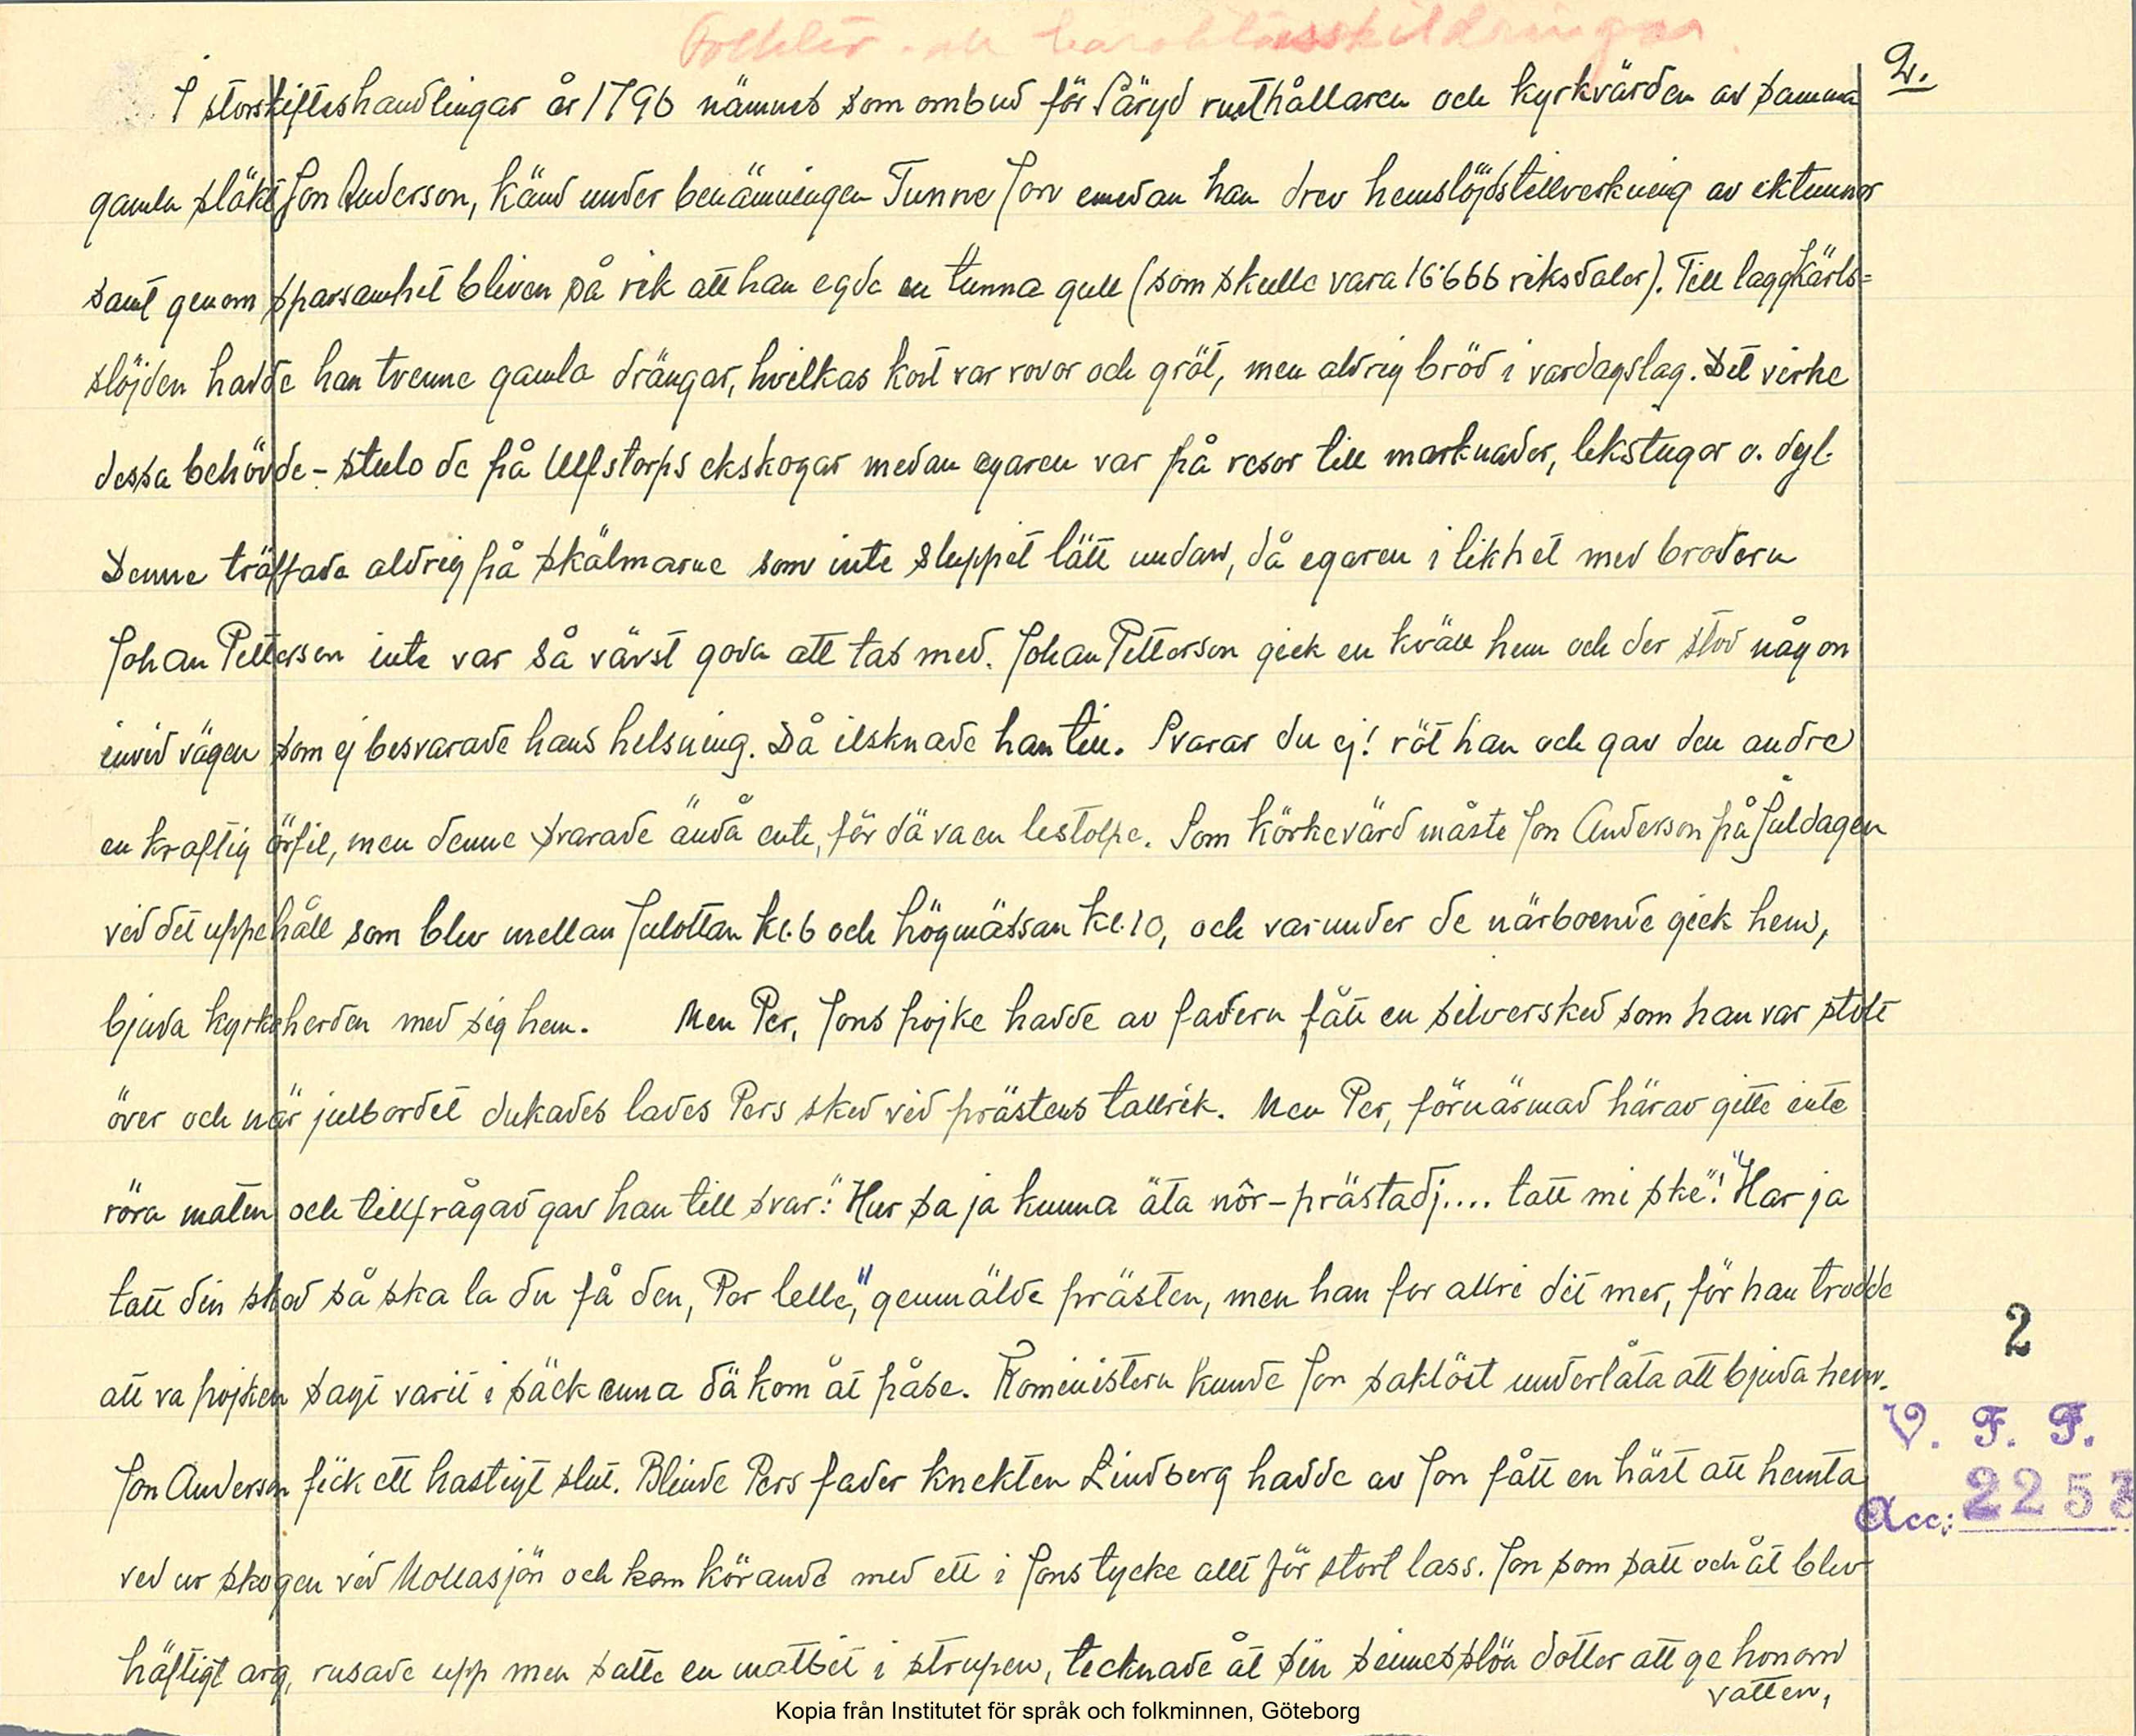 Folkliv- och karaktärsskildringar.
2.
I storskifteshandlingar år 1796 nämnes som ombud för Säryd rusthållaren och kyrkvärden av samma
gamla släkt Jon Anderson, känd under benämningen Tunne Jon emedan han drev hemslöjdstillverkning av ektunnor
samt genom sparsamhet bliven så rik att han egde en tunna gull (som skulle vara 16666 riksdaler). Till laggkärls=
slöjden hadde han tvenne gamla drängar, hvilkas kost var rovor och gröt, men aldrig bröd i vardagslag. Det virke
dessa behövde - stulo de på Ulfstorps ekskogar medan egaren var på resor till marknader, lekstugor o. dyl.
Denne träffade aldrig på skälmarne som inte sluppet lätt undan, då egaren i likhet med brodern
Johan Petterson inte var så värst goda att tas med. Johan Petterson geck en kväll hem och der stod någon
invid vägen som ej besvarade hans helsning. Då ilsknade han till. Svarar du ej! röt han och gav den andre
en kraftig örfil, men denne svarade ändå ente, för dä va en lestolpe. Som körkevärd måste Jon Anderson på Juldagen
vid det uppehåll som blev mellan Julottan kl. 6 och högmässan kl. 10, och varunder de närboende geck hem,
bjuda kyrkoherden med sig hem. Men Per, Jons pojke hadde av fadern fått en silversked som han var stolt
över och när julbordet dukades lades Pers sked vid prästens tallrik. Men Per, förnärmad härav gitte inte
röra maten och tillfrågad gav han till svar: "Hur sa ja kunna äta nôr-prästadj.... tatt mi ske"! "Har ja
tatt din sked så ska la du få den, Per lelle," genmälde prästen, men han for allri dit mer, för han trodde
att va pojken sagt varit i säck enna dä kom åt påse. Komministern kunde Jon saklöst underlåta att bjuda hem.
Jon Anderson feck ett hastigt slut. Blinde Pers fader knekten Lindberg hadde av Jon fått en häst att hemta
ved ur skogen vid Mollasjön och kom körande med ett i Jons tycke allt för stort lass. Jon som satt och åt blev
häftigt arg, rusade upp men satte en matbit i strupen, tecknade åt sin sinnesslöa dotter att ge honom
vatten,
2
V. F. F.
Acc: 2253
Kopia från Institutet för språk och folkminnen, Göteborg